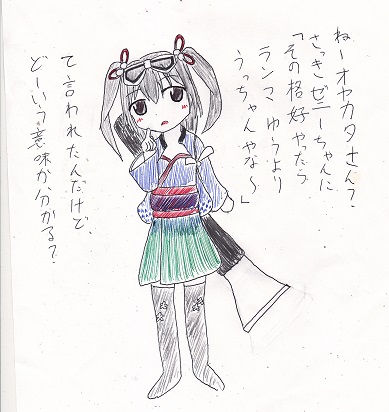 ねーオヤカタさん?
さっきゼニーちゃんに
「その格好やったら
ランマゆうより
うっちゃんやな〜」
て言われたんだけど、
どーいう意味か分かる?